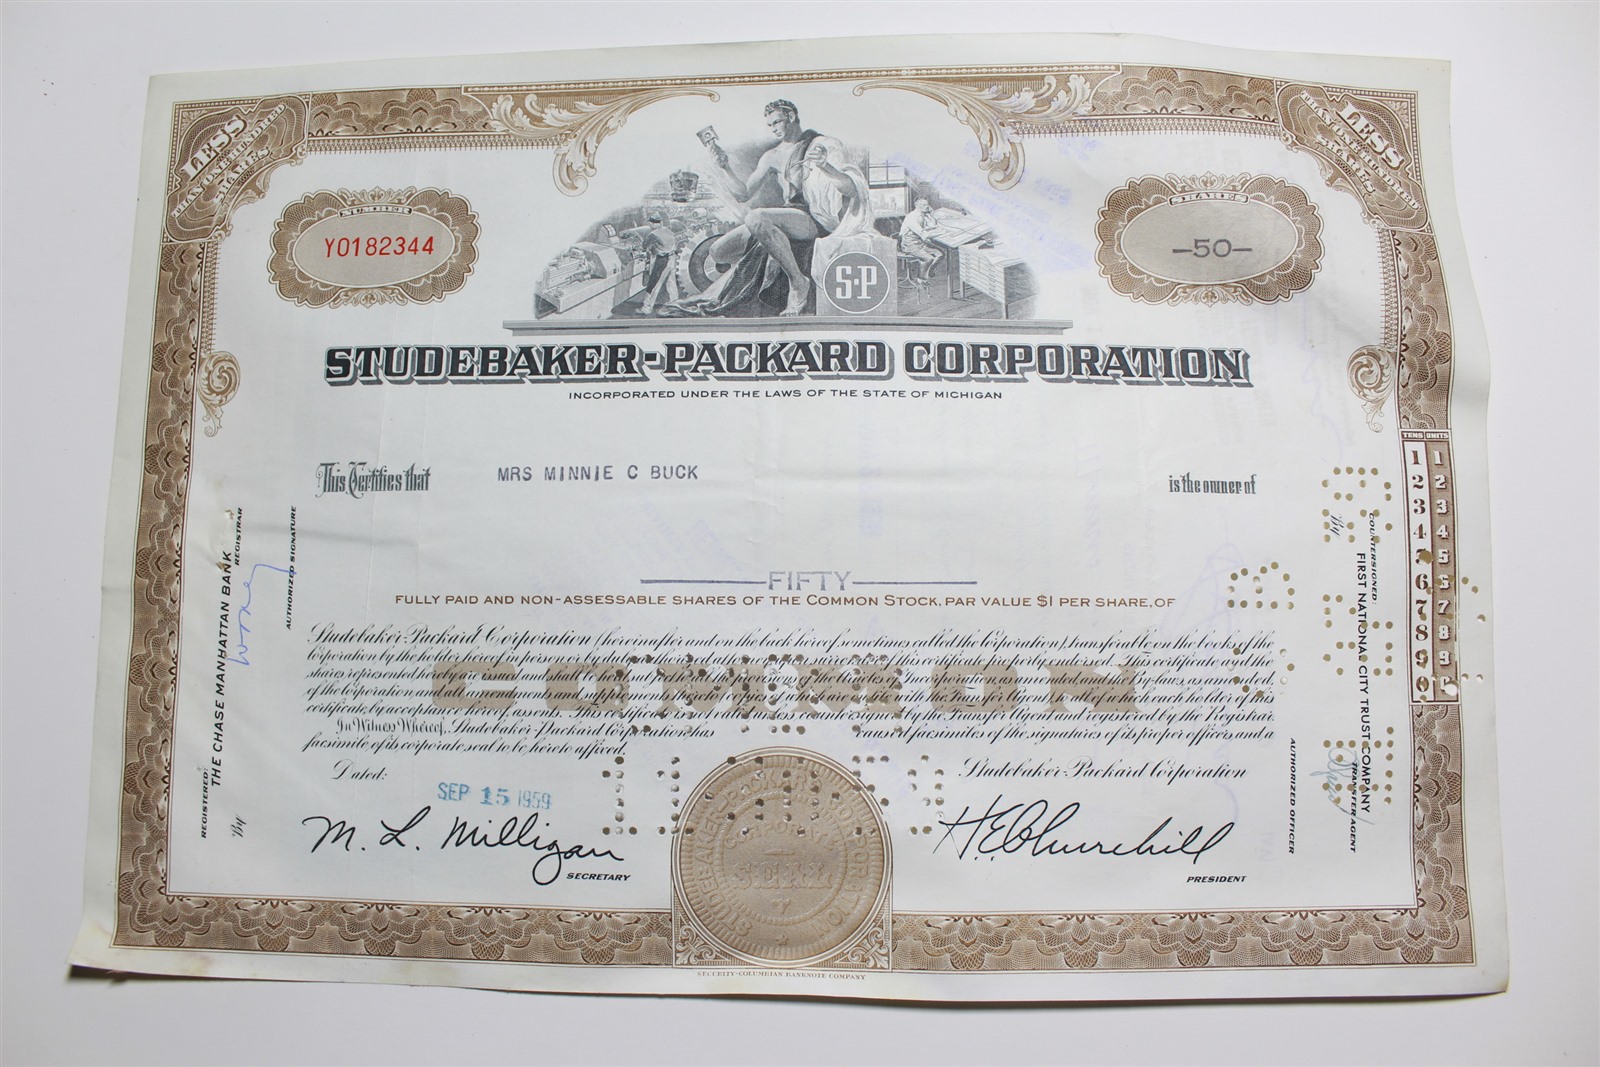 LESS
THAN ONE HUNDRED
SHARES
LESS
THAN ONE HUNDRED
SHARES
NUMBER
Y0182344
SHARES
—50—
S-P
STUDEBAKER-PACKARD CORPORATION
INCORPORATED UNDER THE LAWS OF THE STATE OF MICHIGAN
This Certifies that
MRS MINNIE C BUCK
is the owner of
FIFTY
FULLY PAID AND NON-ASSESSABLE SHARES OF THE COMMON STOCK, PAR VALUE $1 PER SHARE, OF
Studebaker-Packard Corporation (hereinafter and on the back hereof sometimes called the Corporation), transferable on the books of the
Corporation by the holder hereof in person or by duly authorized attorney upon surrender of this certificate properly endorsed. This certificate and the
shares represented hereby are issued and shall be held subject to all the provisions of the Articles of Incorporation, as amended, and the By-laws, as amended,
of the Corporation, and all amendments and supplements thereto (copies of which are on file with the Transfer Agent), to all of which each holder of this
certificate by acceptance hereof, assents. This certificate is not valid unless countersigned by the Transfer Agent and registered by the Registrar.
In Witness Whereof, Studebaker-Packard Corporation has caused facsimiles of the signatures of its proper officers and a
facsimile of its corporate seal to be hereto affixed.
COMMON
Dated:
SEP 15 1959
Studebaker-Packard Corporation
M. L. Milligan
SECRETARY
H E Churchill
PRESIDENT
STUDEBAKER-PACKARD CORPORATION
CORPORATE
SEAL
SECURITY-COLUMBIAN BANKNOTE COMPANY
REGISTERED:
THE CHASE MANHATTAN BANK
REGISTRAR
By
AUTHORIZED SIGNATURE
COUNTERSIGNED:
FIRST NATIONAL CITY TRUST COMPANY
TRANSFER AGENT
By
AUTHORIZED OFFICER
TENS UNITS
1 1
2 2
3 3
4 4
5
6 5
7 7
8 8
9 9
0